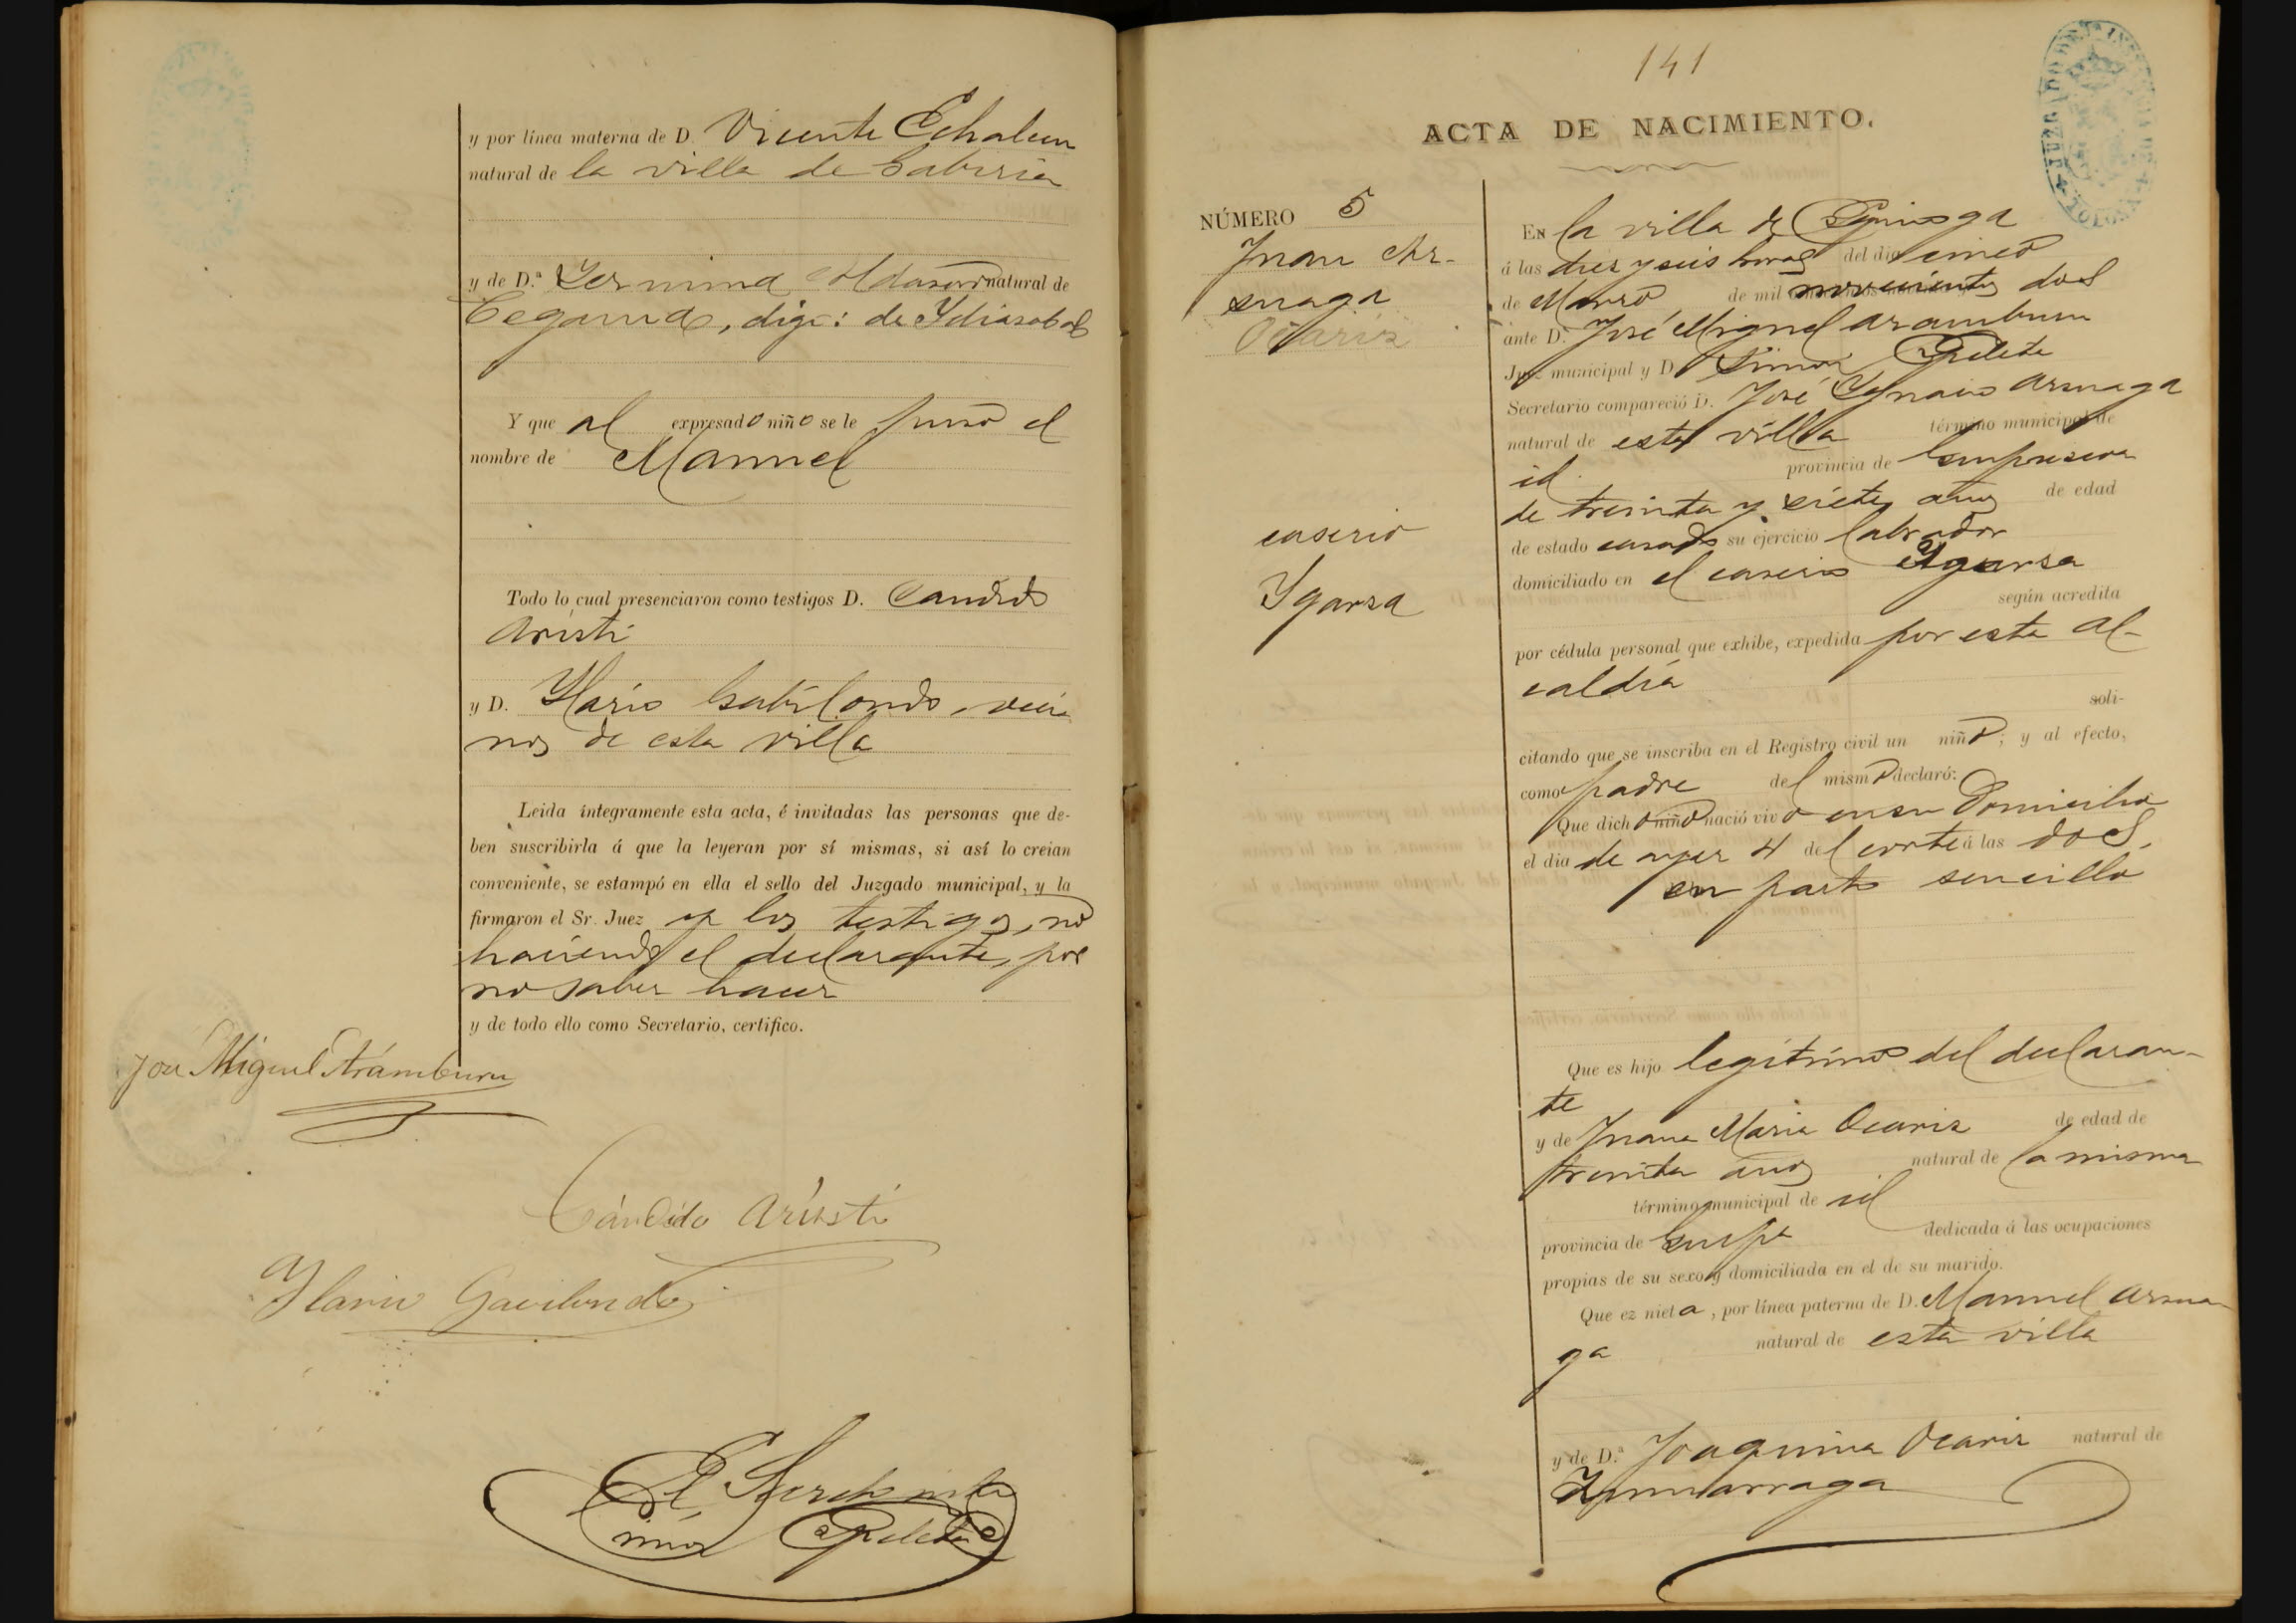 y por línea materna de D. Vicente Echaluce
natural de la villa de Gabiria
y de Dª Gernima Aldasoro natural de
Cegama, digo: de Ydiazabal
Y que al expresado niño se le puso el
nombre de Manuel
Todo lo cual presenciaron como testigos D. Candido
Aristi
y D. Ylario Gabilondo, veci
nos de esta villa
Leida íntegramente esta acta, é invitadas las personas que de-
ben suscribirla á que la leyeran por sí mismas, si así lo creian
conveniente, se estampó en ella el sello del Juzgado municipal, y la
firmaron el Sr. Juez y los testigos, no
haciendo el declarante, por
no saber hacer
y de todo ello como Secretario, certifico.
José Miguel Arámburu
Cándido Aristi
Ylario Gavilondo
141
ACTA DE NACIMIENTO.
NÚMERO 5
Juan Ar-
suaga
Ocáriz
caserio
Ygarza
En la villa de
á las diez y seis horas del dia cinco
de Marzo de mil novecientos dos
ante D. José Miguel Aramburu
Juez municipal y D. Simon
Secretario compareció D. José Ygnacio Arsuaga
natural de esta villa término municipal de
id. provincia de Guipuzcoa
de treinta y siete años de edad
de estado casado su ejercicio labrador
domiciliado en el caserio Ygarza
según acredita
por cédula personal que exhibe, expedida por esta al-
caldía
soli-
citando que se inscriba en el Registro civil un niño; y al efecto,
como padre del mismo declaró:
Que dicho niño nació vivo en su domicilio
el dia de ayer 4 del corte á las dos,
en parto sencillo
Que es hijo legítimo del declaran-
te
y de Juana Maria Ocariz de edad de
treinta años natural de la misma
término municipal de id
provincia de Guipa dedicada á las ocupaciones
propias de su sexo y domiciliada en el de su marido.
Que ez nieta, por línea paterna de D. Manuel Arsua-
ga natural de esta villa
y de D.ª Joaquina Ocariz natural de
Zumarraga